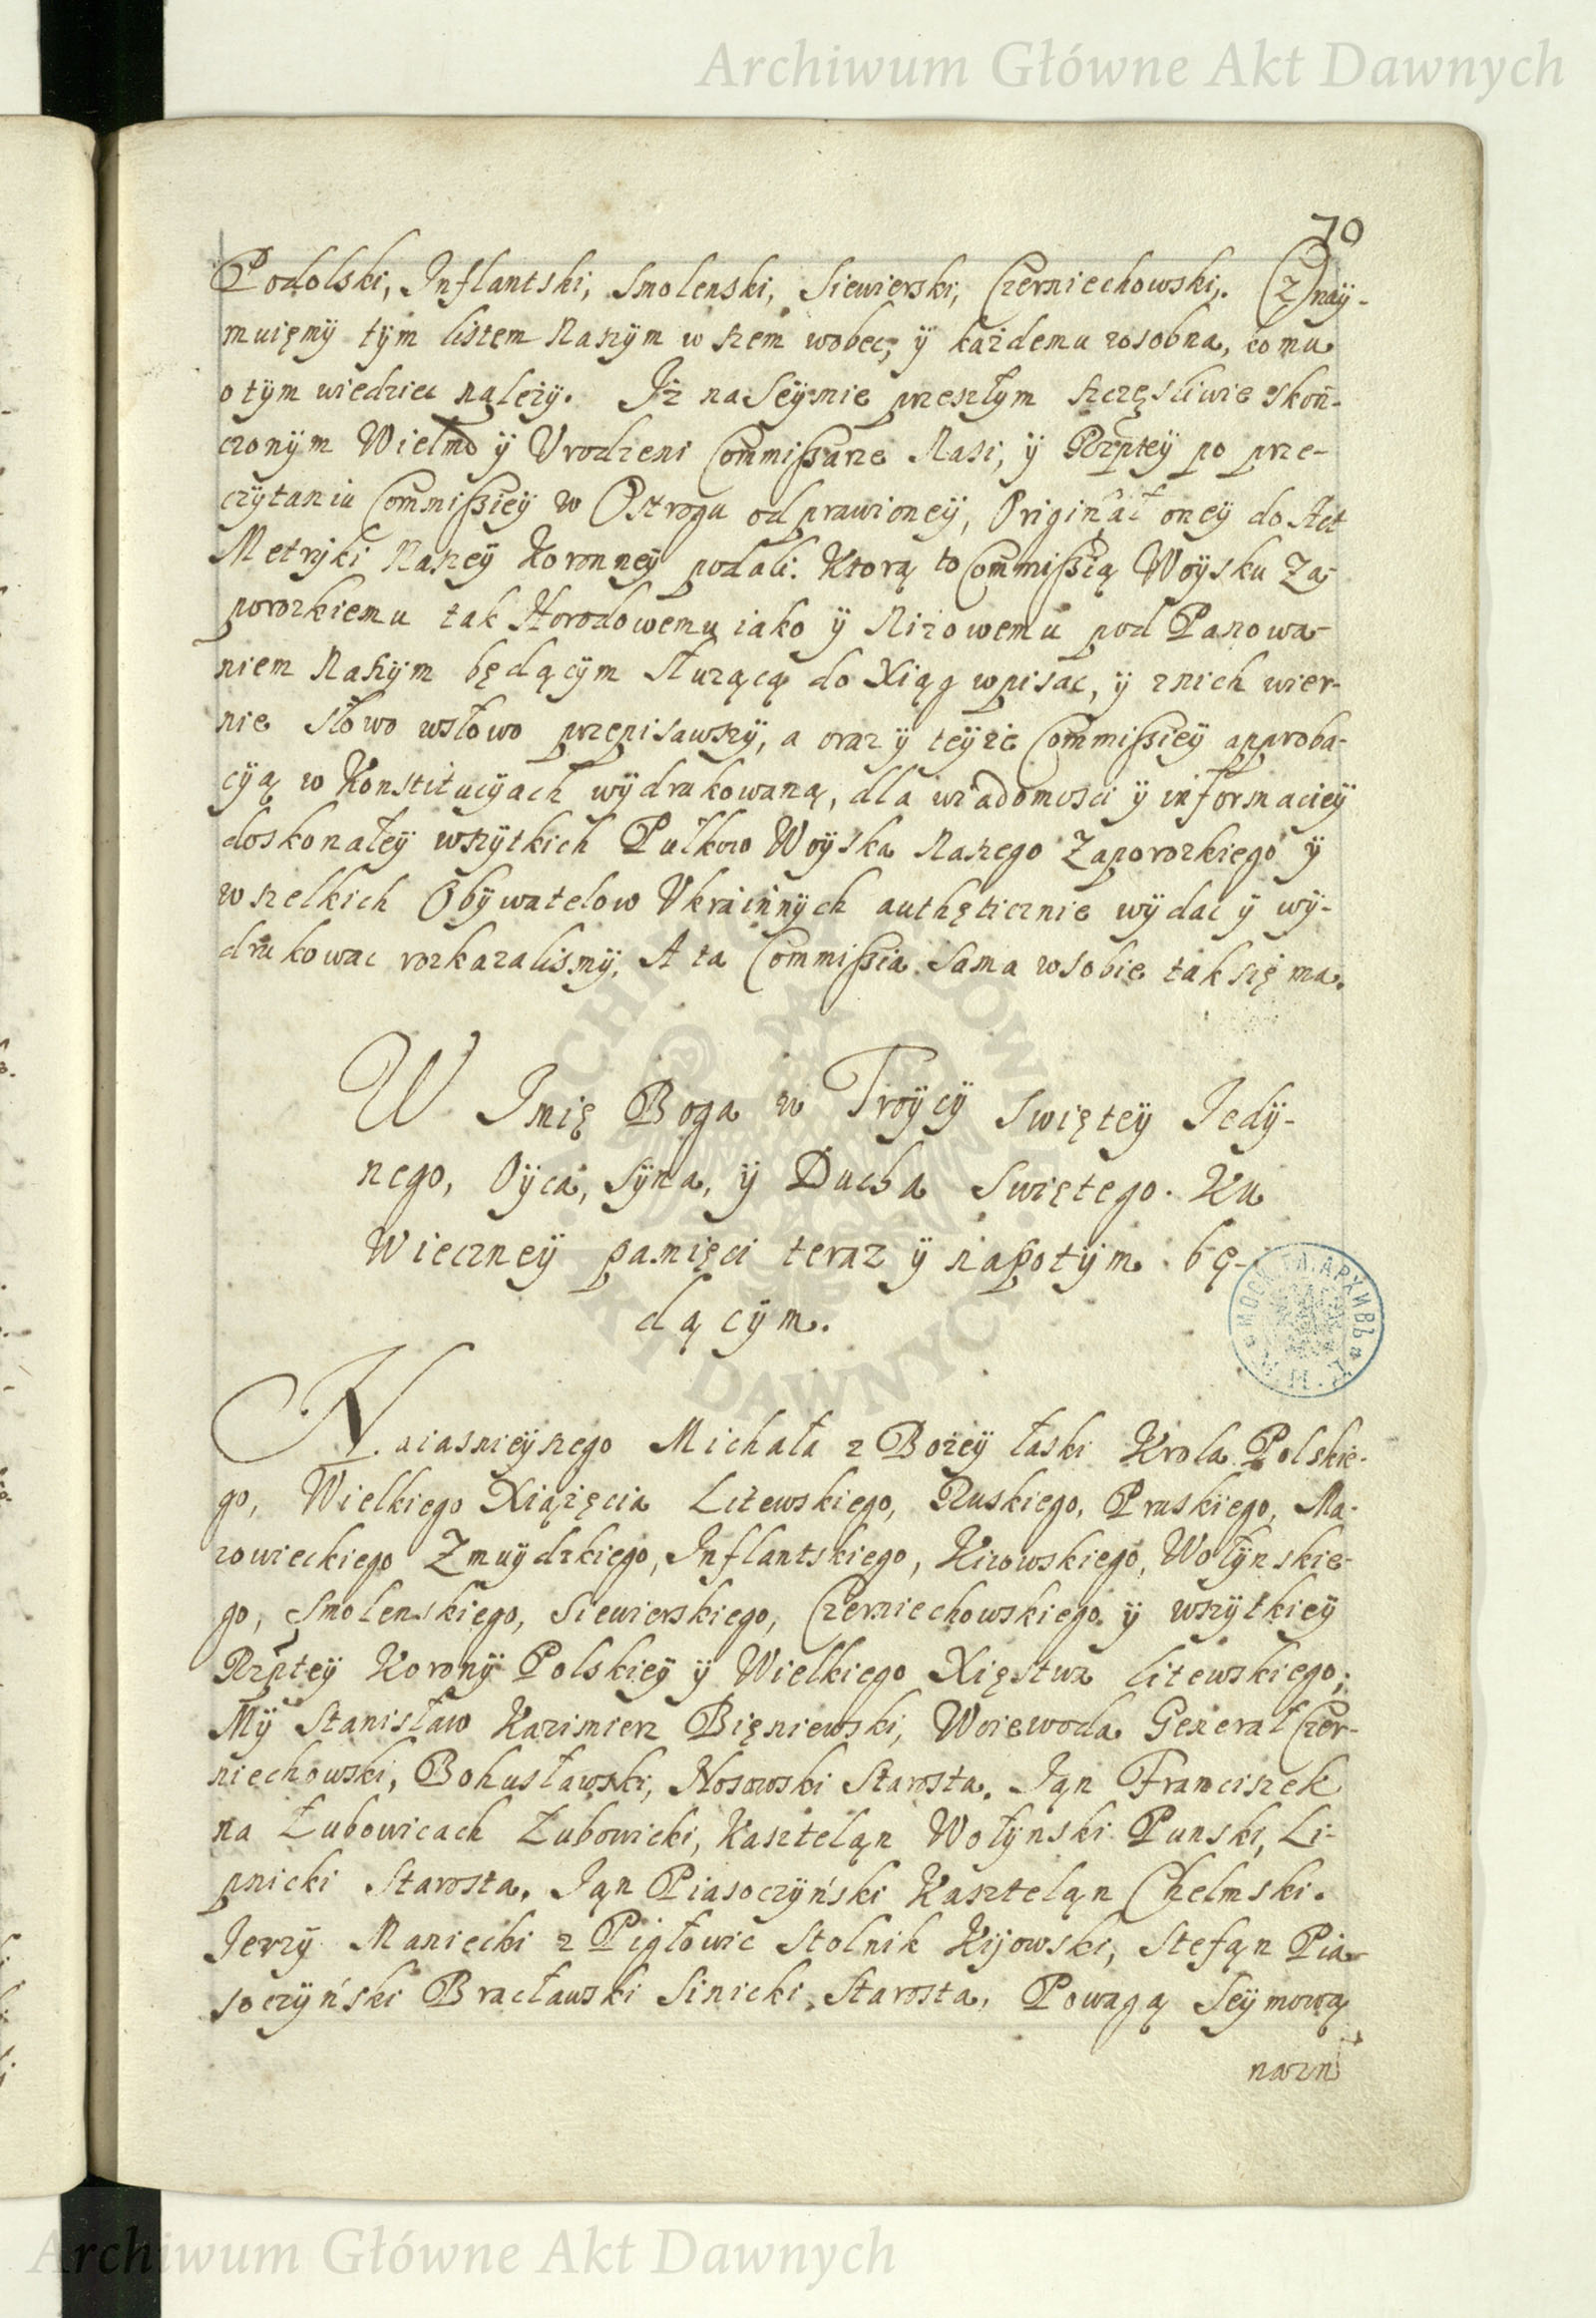 Archiwum Główne Akt Dawnych
70
Podolski, Inflantski, Smolenski, Siewierski, Czerniechowski. Oznaÿ-
muięmÿ tÿm listem Naszÿm w szem wobec, ÿ każdemu zosobna, komu
o tÿm wiedziec należÿ. Iż na Seÿmie przeszłym szczęsliwie skoń-
czonÿm Wielmo ÿ Vrodzeni Commißarze Nasi, ÿ Rzpteÿ po prze-
czÿtaniu Commißieÿ w Ostrogu odprawioneÿ, Originał oneÿ do Act
Metrÿki Naszeÿ Koronneÿ podali. Ktorą to Commißią Woÿsku Za-
porozkiemu tak Horodowemu iako ÿ Nizowemu pod Panowa-
niem Naszÿm będącÿm służącą do Xiąg wpisac, ÿ znich wier-
nie słowo wsłowo przepisawszÿ, a oraz ÿ teÿże Commißieÿ approba-
cÿą w Konstitucÿach wÿdrukowaną, dla wiadomosci ÿ informacieÿ
doskonałeÿ wszÿtkich Pułkow Woÿska Naszego Zaporozkiego ÿ
wszelkich Obÿwatelow Vkrainnÿch authęticznie wÿdac ÿ wÿ-
drukowac rozkazalismÿ, A ta Commißia sama wsobie tak się ma.
W Imię Boga w Troÿcÿ Swięteÿ Iedÿ-
nego, Oÿca, Sÿna, ÿ Ducha Swiętego. Ku
Wieczneÿ pamięci teraz ÿ napotÿm bę-
dącÿm.
Naiasnieÿszego Michała z Bożeÿ łaski Krola Polskie-
go, Wielkiego Xiążęcia Litewskiego, Ruskiego, Pruskiego, Ma-
zowieckiego Zmuÿdzkiego, Inflantskiego, Kiiowskiego, Wołÿnskie-
go, Smolenskiego, Siewierskiego, Czerniechowskiego ÿ wszÿtkieÿ
Rzpteÿ Koronÿ Polskieÿ ÿ Wielkiego Xięstwa litewskiego;
Mÿ Stanisław Kazimierz Bięniewski, Woiewoda Generał Czer-
niechowski, Bohusławski, Nosowski Starosta. Ian Franciszek
na Łubowicach Łubowicki, Kasztelan Wołÿnski Punski, Li-
pnicki Starosta. Ian Piasoczÿński Kasztelan Chelmski.
Ierzÿ Maniecki z Pigłowic Stolnik Kijowski, Stefan Pia-
soczÿński Bracławski Sinicki Starosta, Powagą Seÿmową
nazn
МОСК. ГЛ. АРХИВЪ
М. И. Д.
Archiwum Główne Akt Dawnych